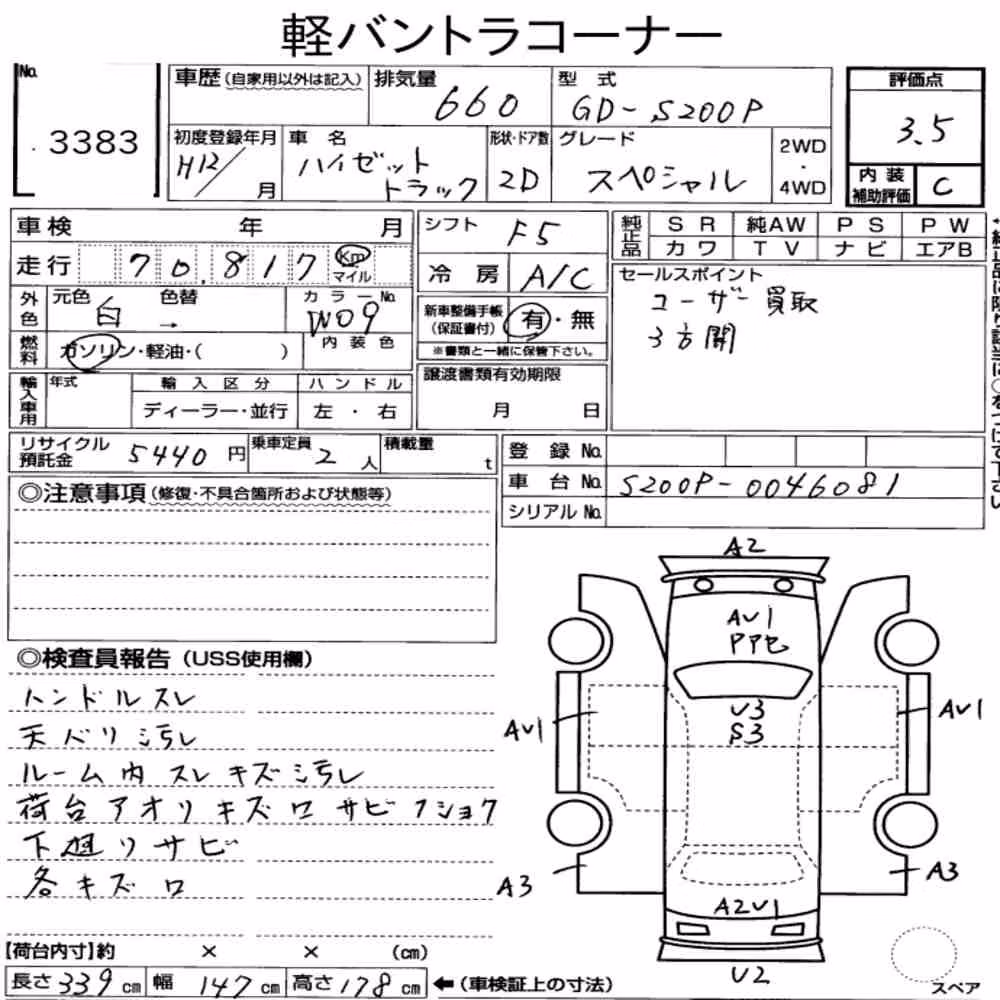 軽バントラコーナー
No. 3383
車歴(自家用以外は記入)
排気量 660
型式 GD-S200P
評価点 3.5
初度登録年月 H12/ 月
車名 ハイゼットトラック
形状・ドア数 2D
グレード スペシャル
2WD・4WD
内装補助評価 C
車検 年 月
シフト F5
純正品 SR 純AW PS PW
カワ TV ナビ エアB
走行 70,817 Km マイル
冷房 A/C
セールスポイント
ユーザー買取
3方開
外色 元色 白 色替 →
カラーNo. W09
内装色
新車整備手帳(保証書付) 有・無
※書類と一緒に保管下さい。
燃料 ガソリン・軽油・( )
輸入車用 年式 輸入区分 ハンドル
ディーラー・並行 左・右
譲渡書類有効期限
月 日
リサイクル預託金 5440円
乗車定員 2人
積載量 t
登録No.
車台No. S200P-0046081
シリアルNo.
◎注意事項(修復・不具合箇所および状態等)
◎検査員報告(USS使用欄)
ハンドルスレ
天バリ汚レ
ルーム内スレキズ汚レ
荷台アオリキズ口サビフショク
下廻リサビ
各キズ口
A2
AV1
PPセ
U3
S3
AV1
AV1
A3
A3
A2V1
U2
スペア
【荷台内寸】約 × × (cm)
長さ339cm 幅147cm 高さ178cm ←(車検証上の寸法)